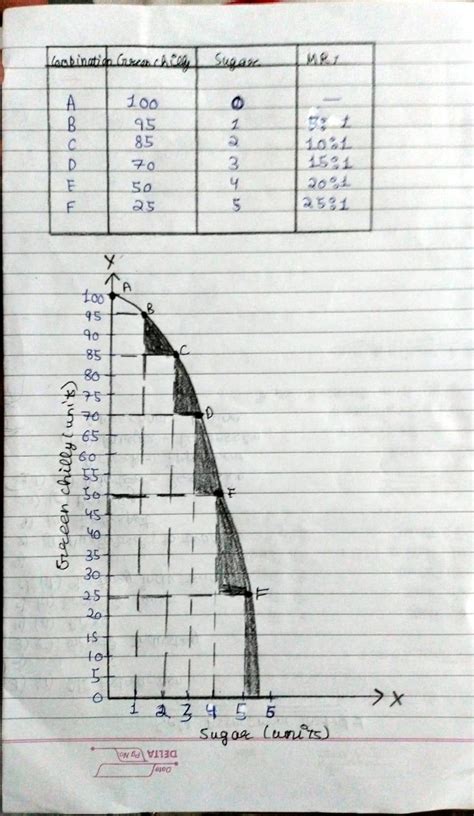 Combination Green chilly Sugar MRT
A 100 0 —
B 95 1 5:1
C 85 2 10:1
D 70 3 15:1
E 50 4 20:1
F 25 5 25:1
X
A
100
B
95
90
C
85
80
75
D
70
65
60
55
E
50
45
40
35
30
F
25
20
15
10
5
0
X
1 2 3 4 5 5
Green chilly (units)
Sugar (units)
DELTA Pg No
Date